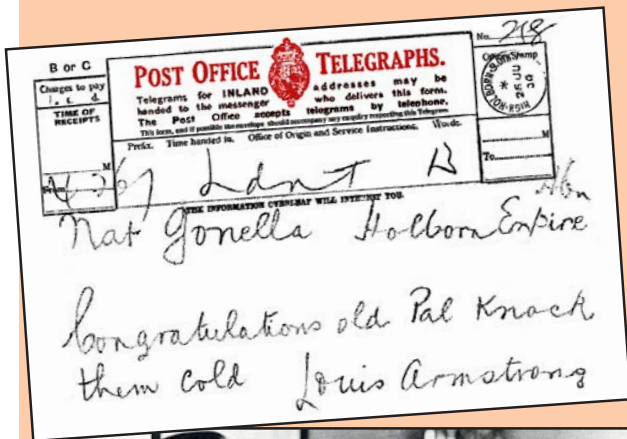 No. 218
B or C
Charges to pay
s. d.
TIME OF
RECEIPTS
M
From
POST OFFICE TELEGRAPHS.
Telegrams for INLAND addresses may be
handed to the messenger who delivers this form.
The Post Office accepts telegrams by telephone.
This form, and if possible the envelope should accompany any enquiry respecting this Telegram.
Prefix. Time handed in. Office of Origin and Service Instructions. Words.
Office Stamp
HIGH HOLBORN
M
To
Ldn T
THE INFORMATION OVERLEAF WILL INTEREST YOU.
Nat Gonella Holborn Empire
Congratulations old Pal Knock
them cold Louis Armstrong